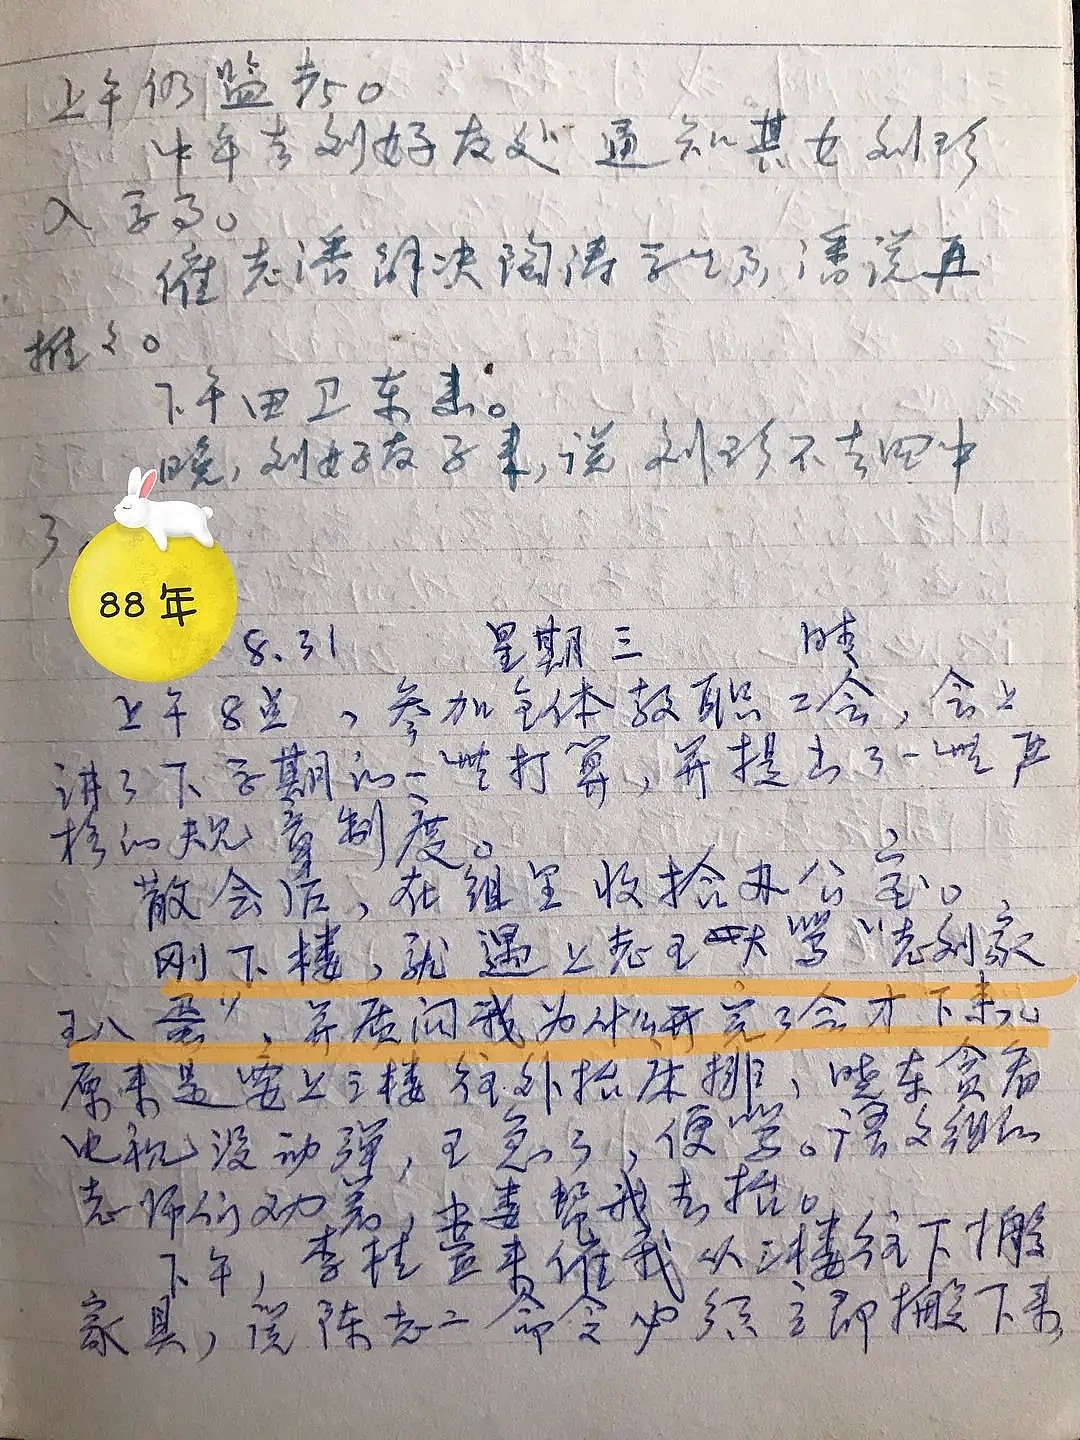 上午仍监考。
中午去刘好友处通知其女刘珍
入学事。
催老潘解决陶涛学生事,潘说再
推推。
下午田卫东来。
晚,刘好友子来,说刘珍不去四中
了
88年
8.31 星期三 晴
上午8点,参加全体教职工会,会上
讲了下学期的一些打算,并提出了一些严
格的规章制度。
散会后,在组里收拾办公室。
刚下楼,就遇上老王大骂“老刘家
王八蛋”,并质问我为什么开完了会才下来。
原来是要上三楼往外抬床排,晓东贪看
电视没动弹,王急了,便骂。语文组的
老师们劝着,帮我去抬。
下午,李桂 来催我从三楼往下搬
家具,说陈老二命令必须立即搬下来,